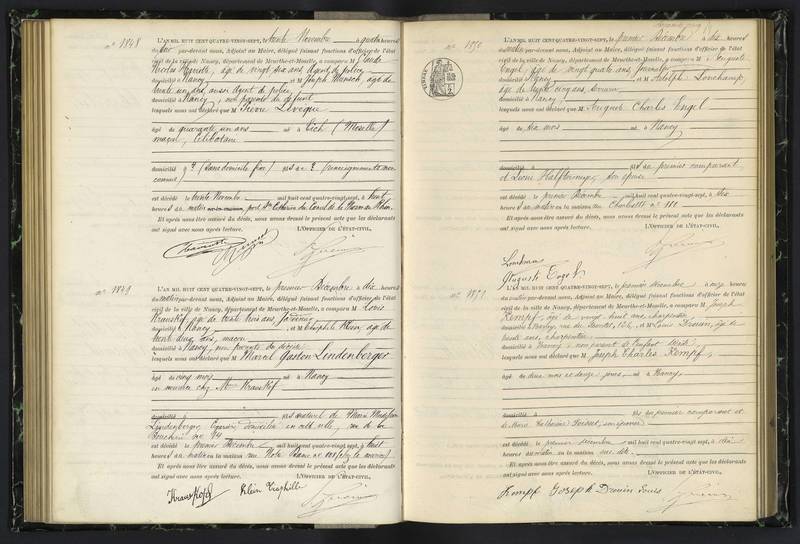 nº 1848
L'AN MIL HUIT CENT QUATRE-VINGT-SEPT, le trente Novembre à quatre heures
du soir par-devant nous, Adjoint au Maire, délégué faisant fonctions d'officier de l'état
civil de la ville de Nancy, département de Meurthe-et-Moselle, a comparu M Claude
Nicolas âgé de vingt six ans, Agent de police,
domicilié à Nancy et M Joseph âgé de
trente un ans, aussi Agent de police,
domicilié à Nancy, non parents du défunt
lesquels nous ont déclaré que M Pierre Lévêque
âgé de quarante un ans né à Bich (Moselle)
maçon, Célibataire
domicilié à ? (sans domicile fixe) fils de ? (renseignements non
connus)
est décédé le trente Novembre mil huit cent quatre-vingt-sept, à huit
heures du matin port Ste Catherine du Canal de la Marne au Rhin.
Et après nous être assuré du décès, nous avons dressé le présent acte que les déclarants
ont signé avec nous après lecture. L'OFFICIER DE L'ÉTAT-CIVIL,
nº 1849
L'AN MIL HUIT CENT QUATRE-VINGT-SEPT, le premier Décembre à dix heures
du matin par-devant nous, Adjoint au Maire, délégué faisant fonctions d'officier de l'état
civil de la ville de Nancy, département de Meurthe-et-Moselle, a comparu M Louis
Kraushof, âgé de trente trois ans,
domicilié à Nancy, et M Théophile Klein, âgé de
trente deux ans, maçon
domicilié à Nancy, non parents du décédé
lesquels nous ont déclaré que M Marcel Gaston Lindenberger
âgé de cinq mois né à Nancy
en nourrice chez Mme Kraushof
domicilié à fils naturel de Marie
Lindenberger, domiciliée en cette ville, rue de la
nº 44
est décédé le premier Décembre mil huit cent quatre-vingt-sept, à huit
heures du matin en la maison rue
Et après nous être assuré du décès, nous avons dressé le présent acte que les déclarants
ont signé avec nous après lecture. L'OFFICIER DE L'ÉTAT-CIVIL,
Klein Théophille
nº 1850
L'AN MIL HUIT CENT QUATRE-VINGT-SEPT, le premier Décembre à dix heures
du matin par-devant nous, Adjoint au Maire, délégué faisant fonctions d'officier de l'état
civil de la ville de Nancy, département de Meurthe-et-Moselle, a comparu M Auguste
Engel, âgé de vingt quatre ans, Journalier
domicilié à Nancy et M Adolphe Lonchamp,
âgé de trente cinq ans,
domicilié à Nancy
lesquels nous ont déclaré que M Auguste Charles Engel
âgé de six mois né à Nancy
domicilié à fils du premier comparant
et Léonie son épouse
est décédé le premier Décembre mil huit cent quatre-vingt-sept, à six
heures du matin en la maison rue Charlotte nº 110
Et après nous être assuré du décès, nous avons dressé le présent acte que les déclarants
ont signé avec nous après lecture. L'OFFICIER DE L'ÉTAT-CIVIL,
Auguste Engel
nº 1851
L'AN MIL HUIT CENT QUATRE-VINGT-SEPT, le premier décembre à onze heures
du matin par-devant nous, Adjoint au Maire, délégué faisant fonctions d'officier de l'état
civil de la ville de Nancy, département de Meurthe-et-Moselle, a comparu M Joseph
Kempf, âgé de vingt huit ans, charpentier
domicilié à Nancy, rue et M Louis Drouin, âgé de
trente ans, charpentier
domicilié à Nancy, non parent de l'enfant décédé
lesquels nous ont déclaré que M Joseph Charles Kempf,
âgé de deux mois et douze jours né à Nancy,
domicilié à fils du premier comparant et
de Marie Catherine son épouse
est décédé le premier décembre mil huit cent quatre-vingt-sept, à
heures du matin en la maison rue dite
Et après nous être assuré du décès, nous avons dressé le présent acte que les déclarants
ont signé avec nous après lecture. L'OFFICIER DE L'ÉTAT-CIVIL,
Kempf Joseph Drouin Louis